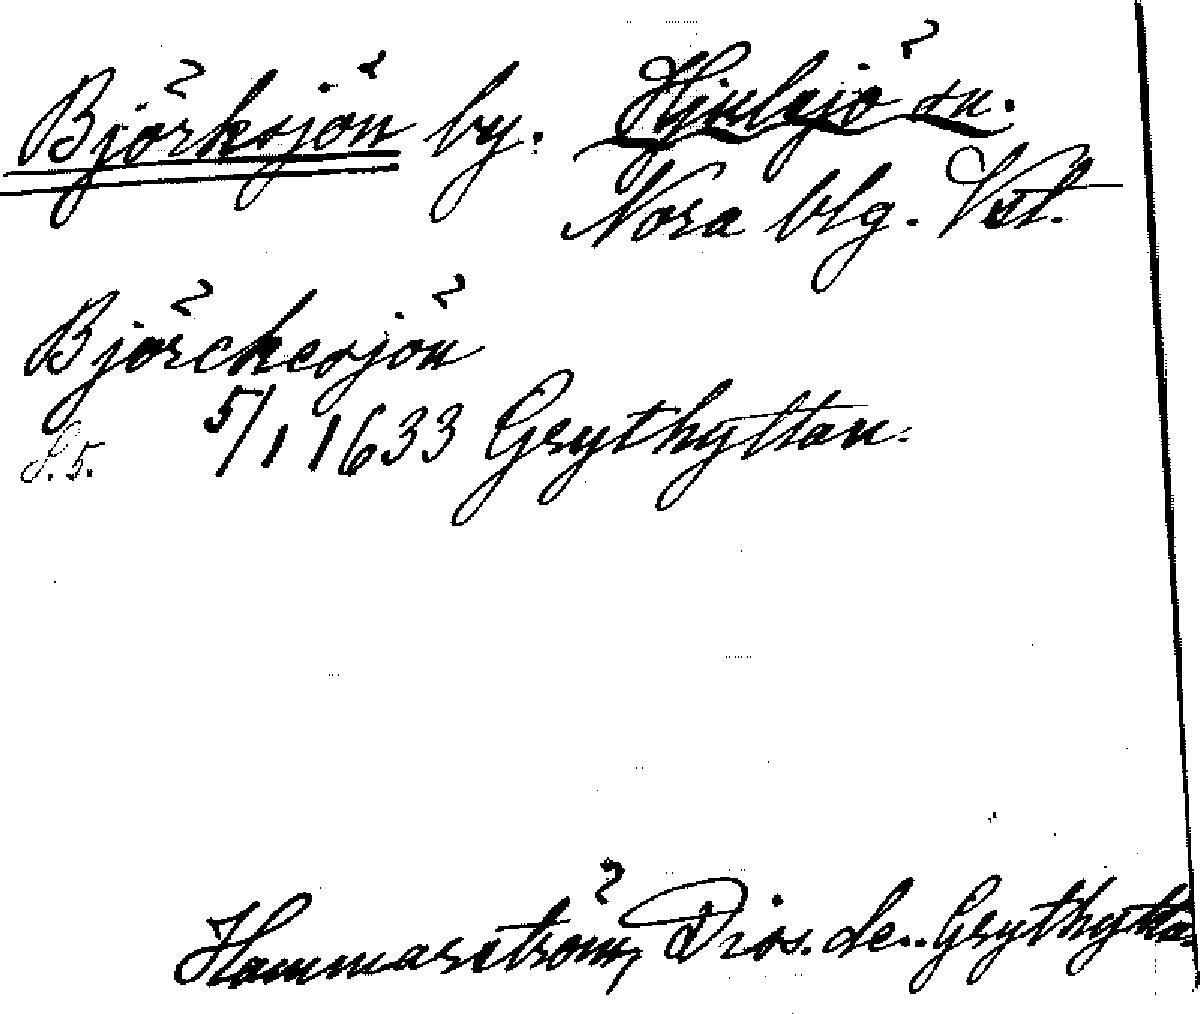 Björksjön by. Hjulsjö sn.
Nora blg. Vstl.
Björckesjön
S. 5. 5/1 1633 Grythyttan.
Hammarström, Diss. de. Grythytta